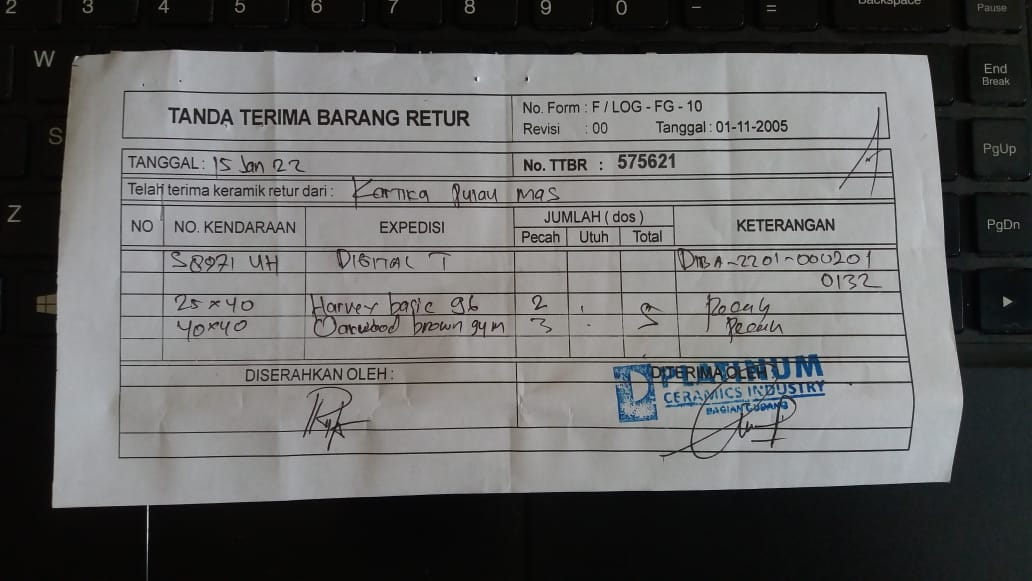 TANDA TERIMA BARANG RETUR
No. Form : F / LOG - FG - 10
Revisi : 00 Tanggal : 01-11-2005
TANGGAL : 15 Jan 22
No. TTBR : 575621
Telah terima keramik retur dari : Kartika Pulau Mas
NO NO. KENDARAAN EXPEDISI JUMLAH ( dos ) KETERANGAN
Pecah Utuh Total
S 8971 UH DIGITAL T DTBA-2201-000201
0132
25 x 40 Harvey basic 96 2 5 Pecah
40x40 brown gym 3 Pecah
DISERAHKAN OLEH : DITERIMA OLEH
PLATINUM
CERAMICS INDUSTRY
BAGIAN GUDANG